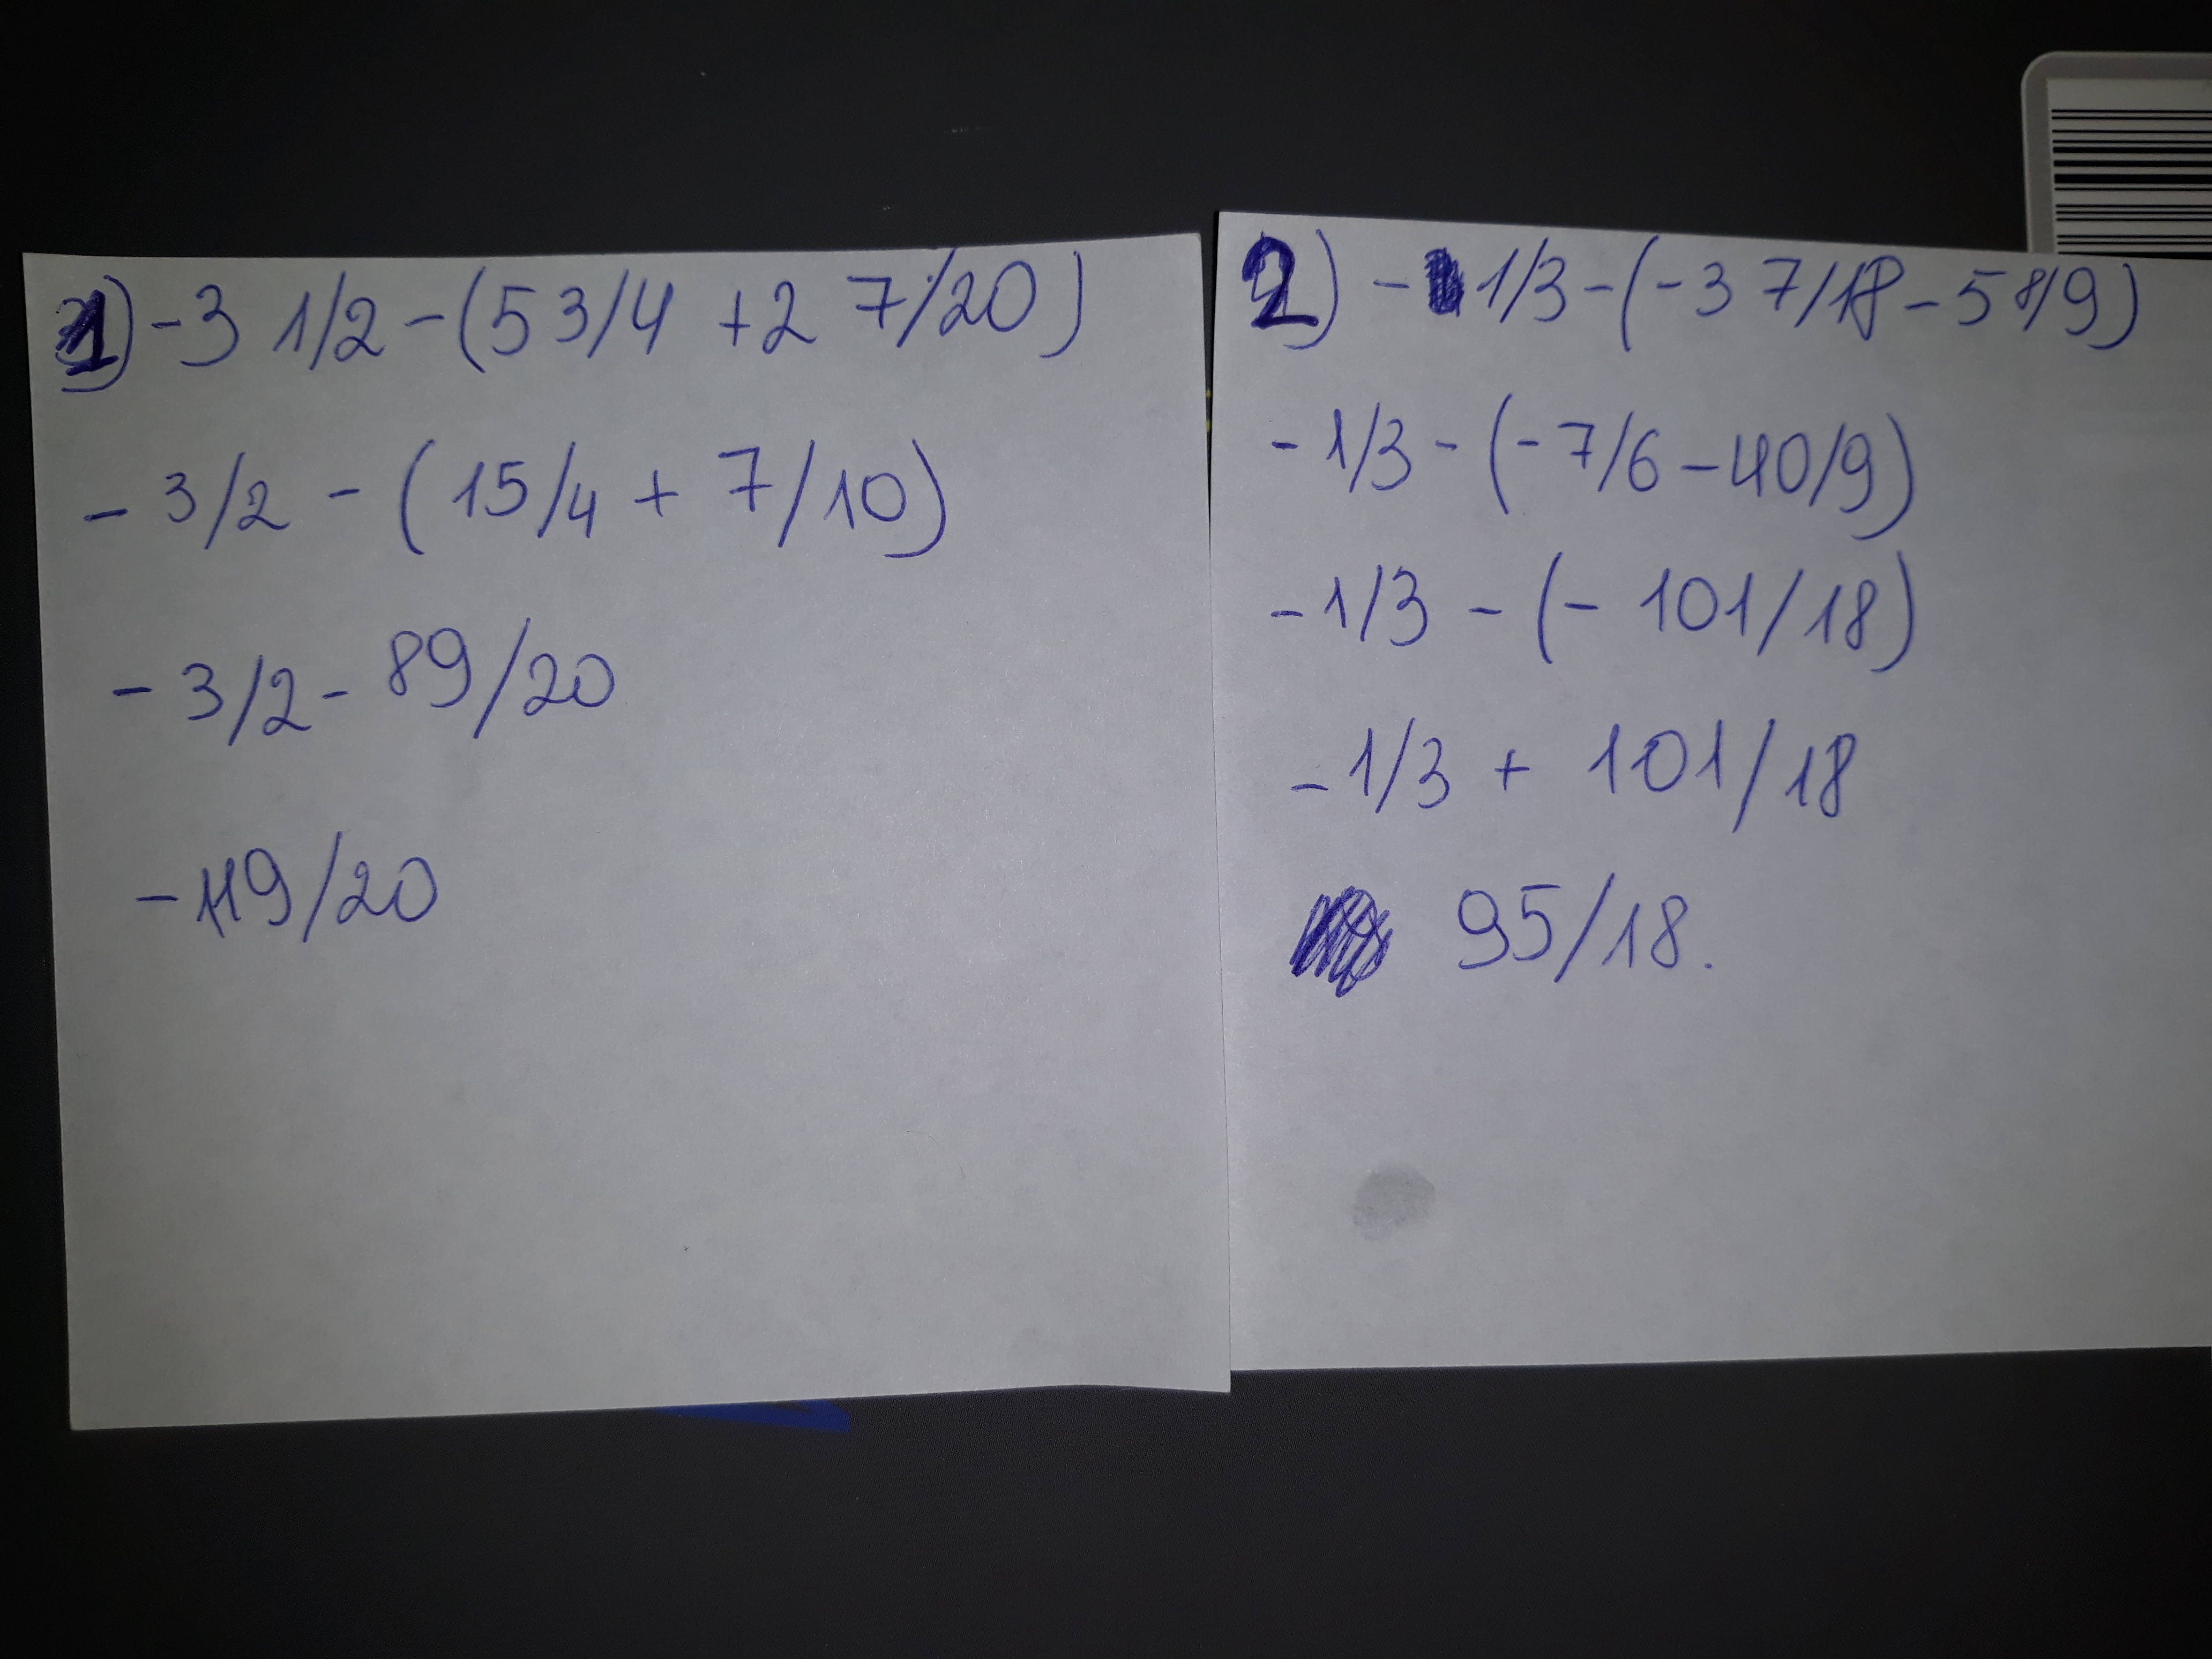 1) -3 1/2 - (5 3/4 + 2 7/20)
- 3/2 - (15/4 + 7/10)
- 3/2 - 89/20
- 119/20
2) - 1/3 - (-3 7/18 - 5 8/9)
- 1/3 - (- 7/6 - 40/9)
- 1/3 - (- 101/18)
- 1/3 + 101/18
95/18.